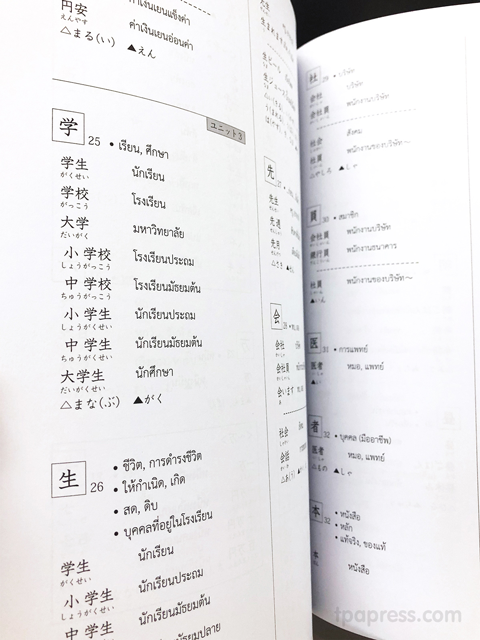 円安 ค่าเงินเยนแข็งค่า
えんやす ค่าเงินเยนอ่อนค่า
△まる(い) ▲えん
ユニット3
学 25 • เรียน, ศึกษา
学生 นักเรียน
がくせい
学校 โรงเรียน
がっこう
大学 มหาวิทยาลัย
だいがく
小学校 โรงเรียนประถม
しょうがっこう
中学校 โรงเรียนมัธยมต้น
ちゅうがっこう
小学生 นักเรียนประถม
しょうがくせい
中学生 นักเรียนมัธยมต้น
ちゅうがくせい
大学生 นักศึกษา
だいがくせい
△まな(ぶ) ▲がく
生 26 • ชีวิต, การดำรงชีวิต
• ให้กำเนิด, เกิด
• สด, ดิบ
• บุคคลที่อยู่ในโรงเรียน
学生 นักเรียน
がくせい
小学生 นักเรียนประถม
しょうがくせい
中学生 นักเรียนมัธยมต้น
นักเรียนมัธยมปลาย
先 27
先生
先週
先月
会 28
会社
会社員
会います
社会
会話
社 29 • บริษัท
会社 บริษัท
会社員 พนักงานบริษัท
社会 สังคม
社員 พนักงานของบริษัท～
△やしろ ▲しゃ
員 30 • สมาชิก
会社員 พนักงานบริษัท
銀行員 พนักงานธนาคาร
社員 พนักงานของบริษัท～
▲いん
医 31 • การแพทย์
医者 หมอ, แพทย์
▲い
者 32 • บุคคล (มืออาชีพ)
医者 หมอ, แพทย์
△もの ▲しゃ
本 32 • หนังสือ
• หลัก
• แท้จริง, ของแท้
本 หนังสือ
tpapress.com